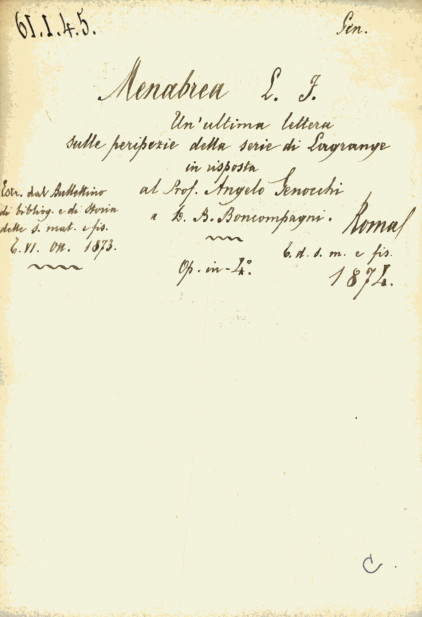 61.1.4.5.
Gen.
Menabrea L. F.
Un'ultima lettera
sulle peripezie della serie di Lagrange
in risposta
al Prof. Angelo Genocchi
a D. B. Boncompagni.
Estr. dal Bullettino
di bibliog. e di Storia
delle s. mat. e fis.
T. VI. Ott. 1873.
Roma
T. d. s. m. e fis.
1874.
Op. in-4.º
C.